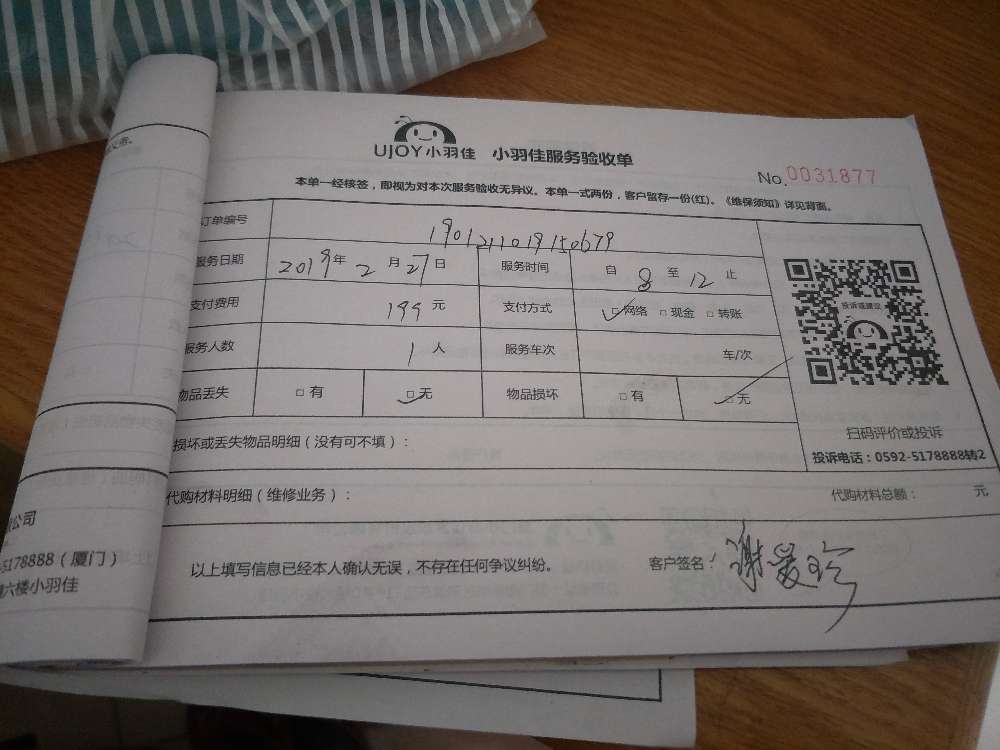 UJOY小羽佳 小羽佳服务验收单
No.0031877
本单一经核签，即视为对本次服务验收无异议。本单一式两份，客户留存一份(红)。《维保须知》详见背面。
订单编号
服务日期 2019年 2 月 27 日 服务时间 自 8 至 12 止
支付费用 199 元 支付方式 □网络 □现金 □转账
服务人数 1 人 服务车次 车/次
物品丢失 □有 □无 物品损坏 □有 □无
投诉或建议
扫码评价或投诉
投诉电话：0592-5178888转2
损坏或丢失物品明细（没有可不填）：
代购材料明细（维修业务）： 代购材料总额： 元
以上填写信息已经本人确认无误，不存在任何争议纠纷。 客户签名： 谢爱珍
公司
5178888（厦门）
六楼小羽佳